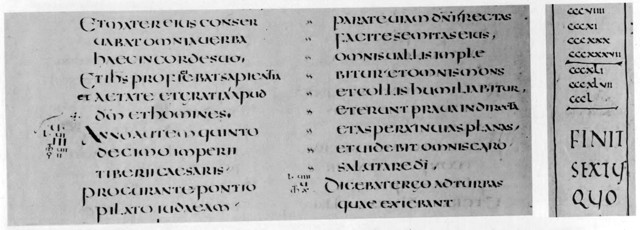 ET MATER EIUS CONSER
UABAT OMNIA UERBA
HAEC IN CORDE SUO,
ET IHS PROFICIEBAT SAPIENTIA
et AETATE ET GRATIA APUD
DM ET HOMINES,
ANNO AUTEM QUINTO
DECIMO IMPERII
TIBERII CAESARIS
PROCURANTE PONTIO
PILATO IUDAEAM
PARATE UIAM DNI RECTAS
FACITE SEMITAS EIUS,
OMNIS UALLIS IMPLE
BITUR ET OMNIS MONS
ET COLLIS HUMILIABITUR,
ET ERUNT PRAUA IN DIRECTA
ET ASPERA IN UIAS PLANAS,
ET UIDEBIT OMNIS CARO
SALUTARE DI,
DICEBAT ERGO AD TURBAS
QUAE EXIEBANT
CCCVIIII
CCCXI
CCCXXX
CCCXXXVII
CCCXLI
CCCXLVII
CCCL
FINIT
SEXTUS
QUO